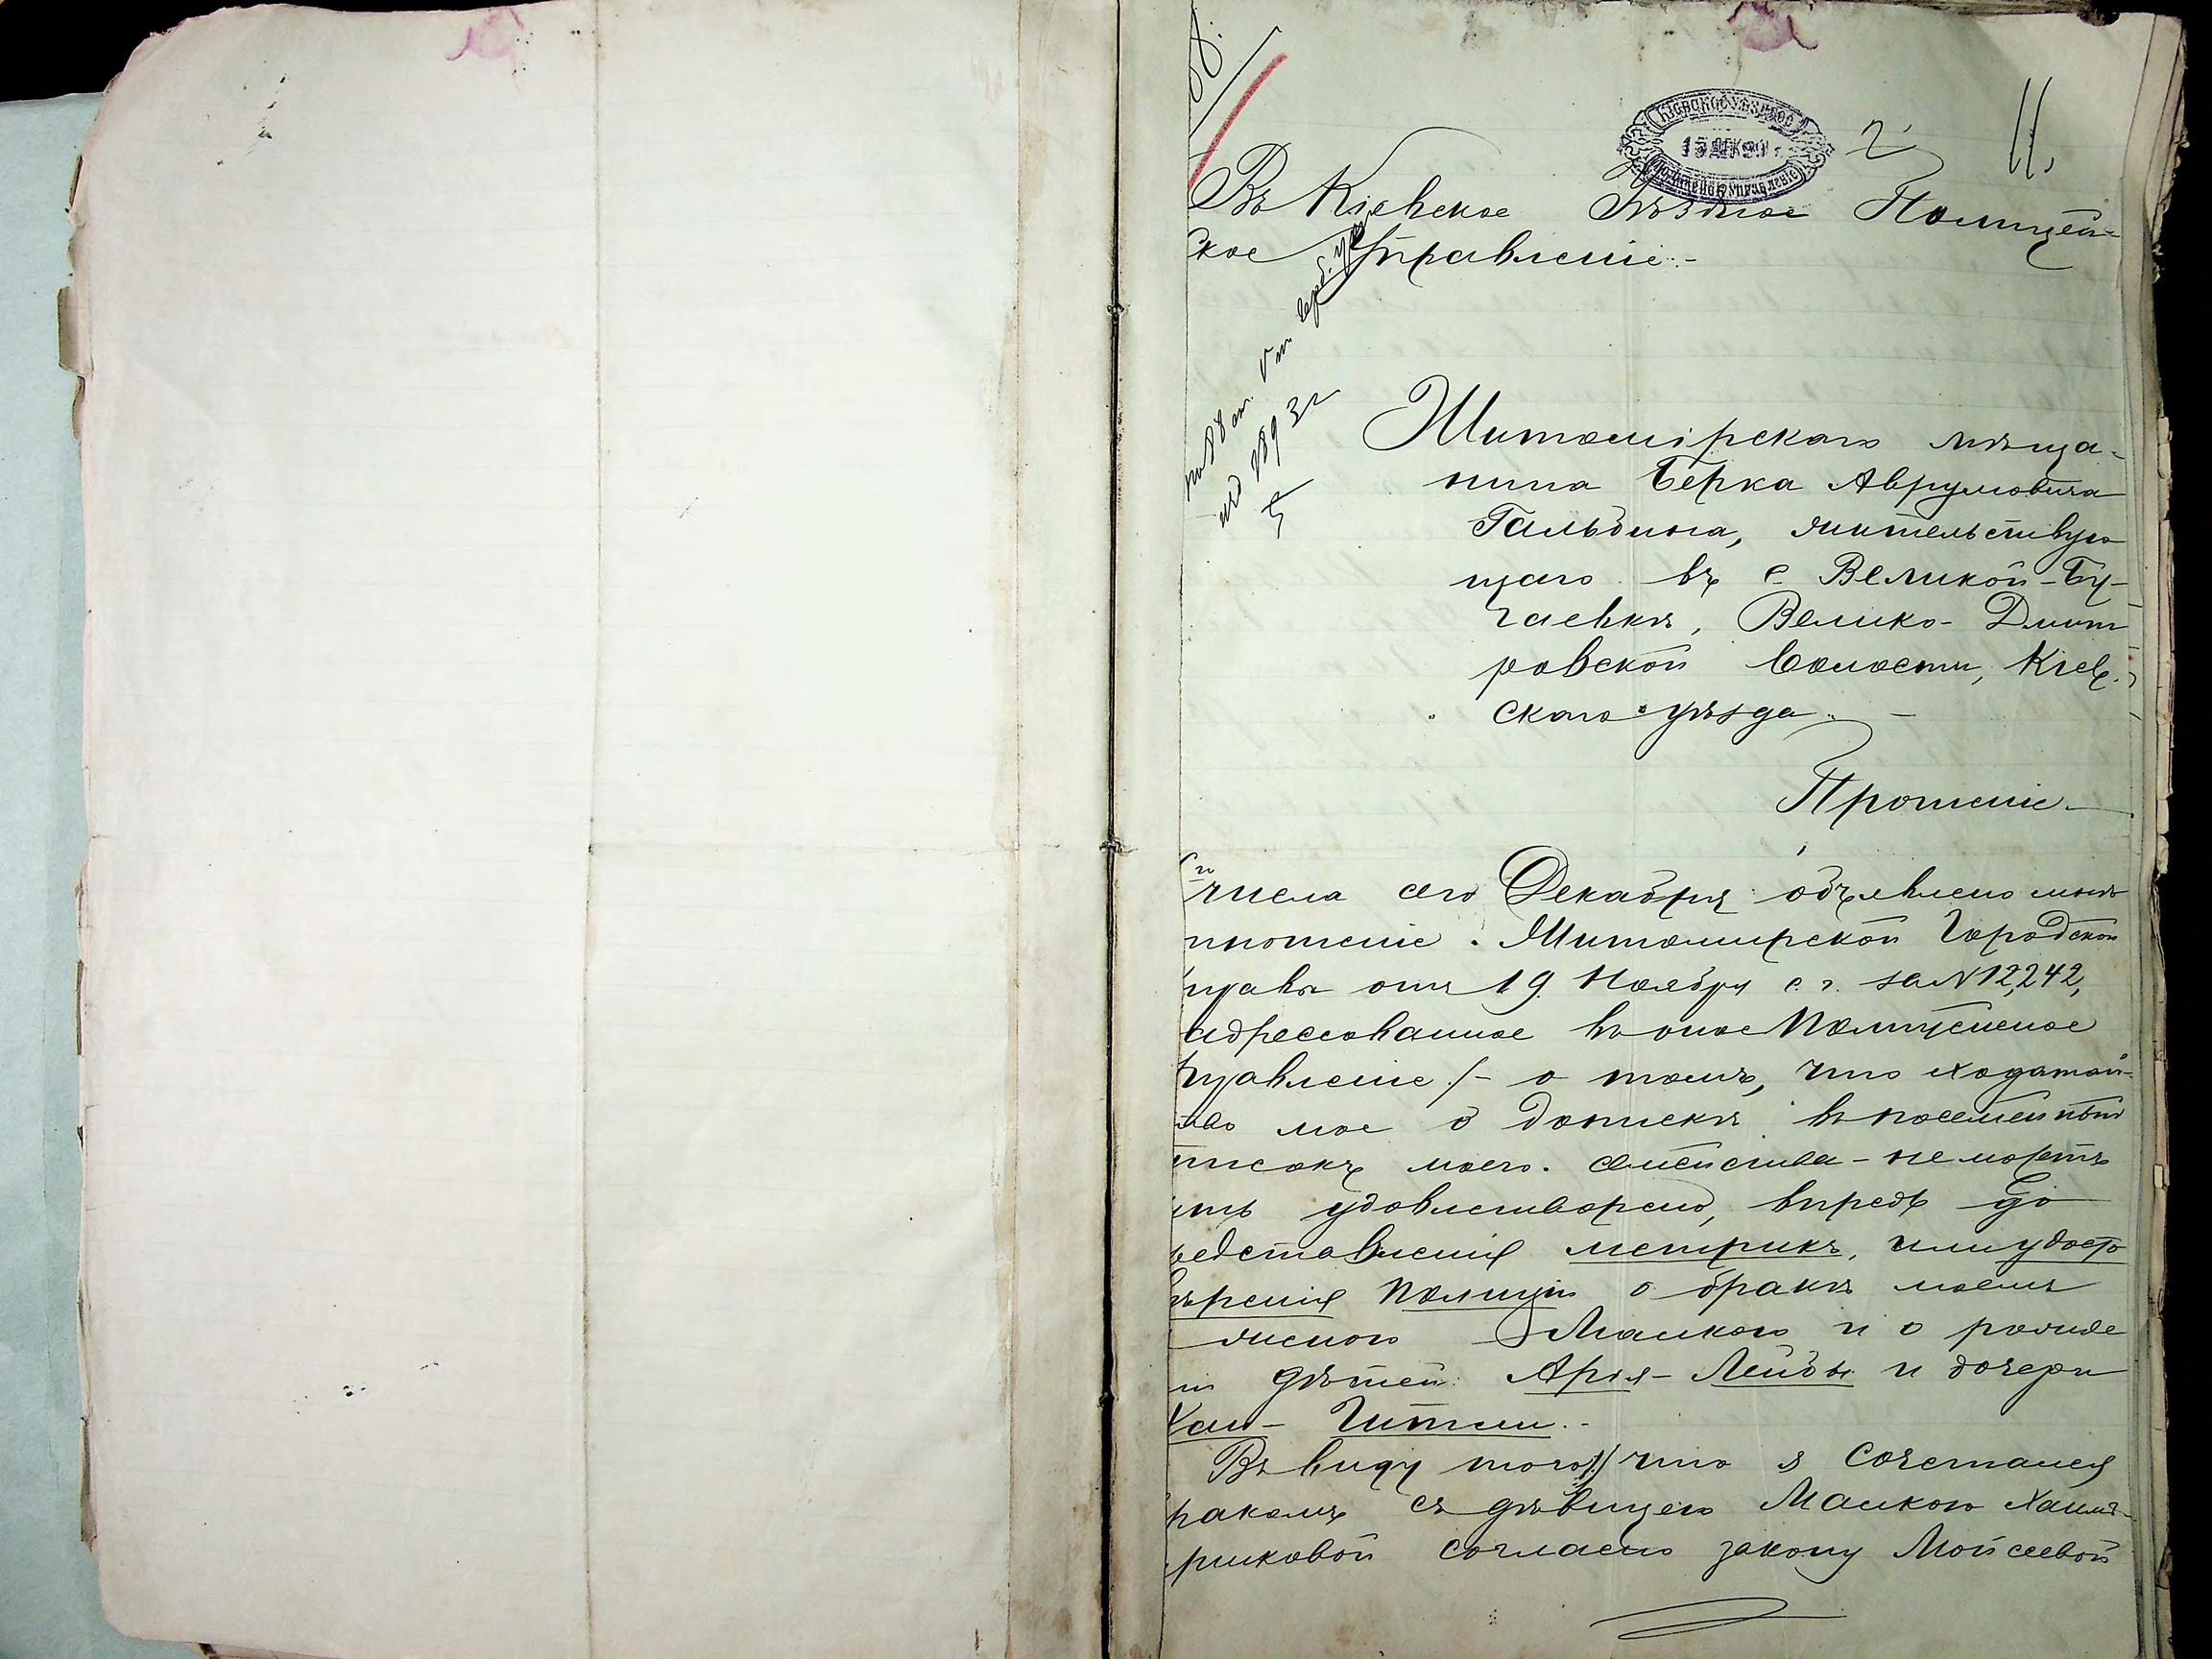 КІЕВСКОЕ УѢЗДНОЕ
15 ДЕК
ПОЛИЦЕЙСКОЕ УПРАВЛЕНІЕ
2
11.
Въ Кіевское Уѣздное Полицей-
ское Управленіе.-
Житомірскаго мѣща-
нина Берка Аврумовича
Гальдина, жительствую
щаго въ с Великой-Бу-
гаевкѣ, Велико-Дмит
ровской волости, Кіев-
скаго уѣзда. -
Прошеніе.
числа сего Декабря объявлено мнѣ
ношеніе Житомирской Городской
правы отъ 19 Ноября с. г. за N 12,242,
адрессованное въ оное Полицейское
правленіе /- о томъ, что ходатай-
тво мое о допискѣ въ посемейный
писокъ моего семейства - не можетъ
ыть удовлетворено, впредь до
редставленія метрикъ, или удосто
вѣренія Полиціи о бракѣ моемъ
женою Малкою и о рожде
ніи дѣтей: Арія-Лейбы и дочери
Хаи-Гитли.-
Въ виду того, что я сочетался
ракомъ съ дѣвицею Малкою Хаимъ-
риковой согласно закону Мойсеевой